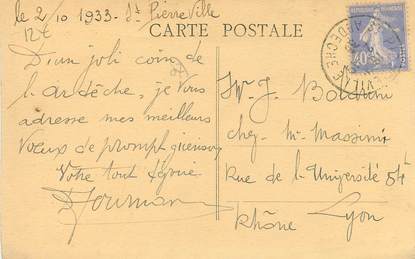 le 2/10 1933 - St Pierre Ville
CARTE POSTALE
D'un joli coin de
l'ardèche, je Vous
adresse mes meilleurs
Vœux de prompt guérison
Votre tout dévoué
Mr J.
chez Mr Massimi
Rue de l'Université 54
Lyon
Rhône
40c
ARDECHE